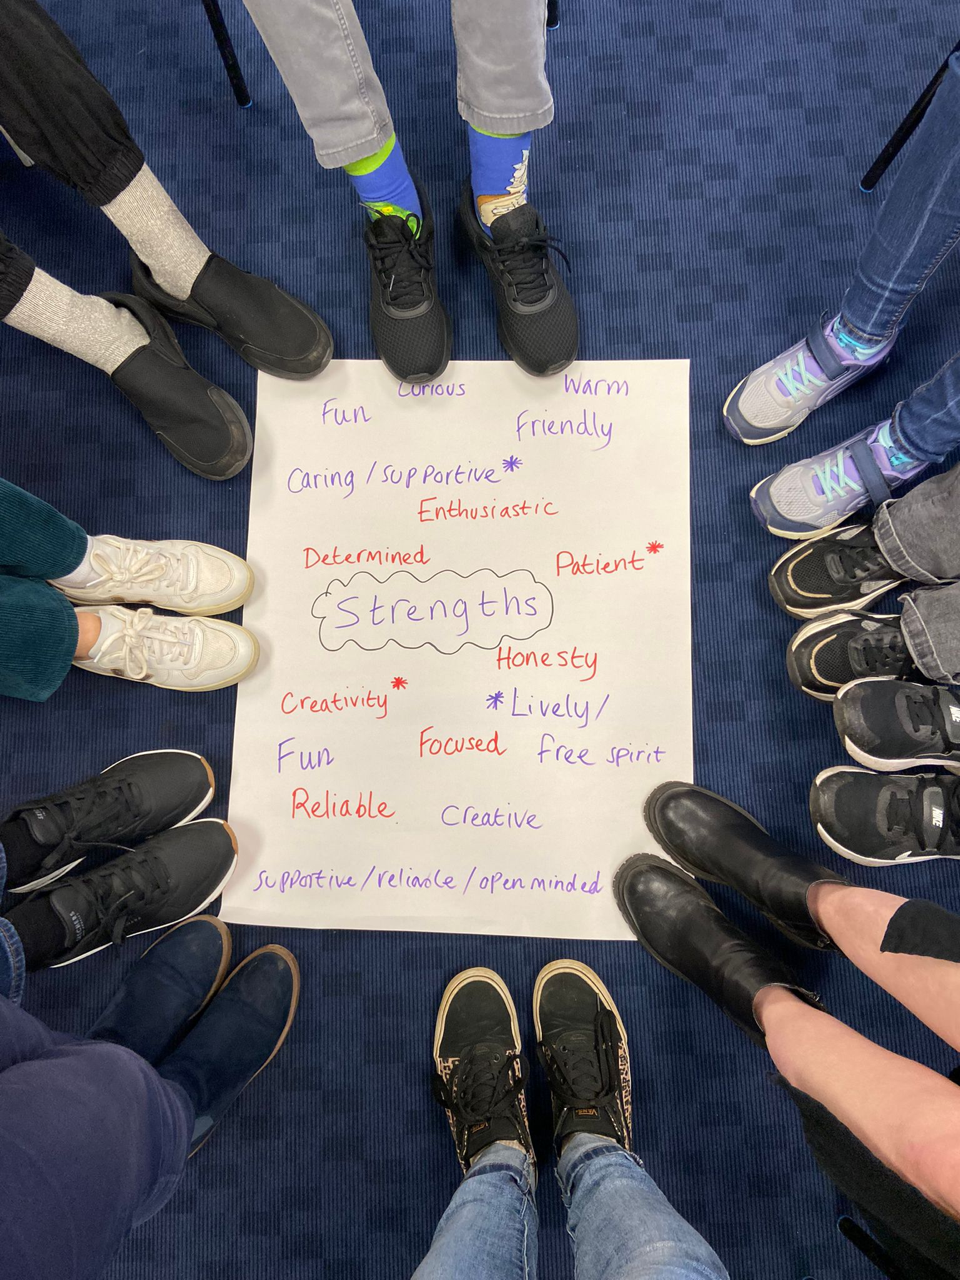 Curious Warm
Fun
Friendly
Caring / supportive *
Enthusiastic
Determined
Patient *
Strengths
Honesty
Creativity *
* Lively /
free spirit
Fun
Focused
Reliable
Creative
supportive / reliable / open minded
NIKE
NIKE
VANS